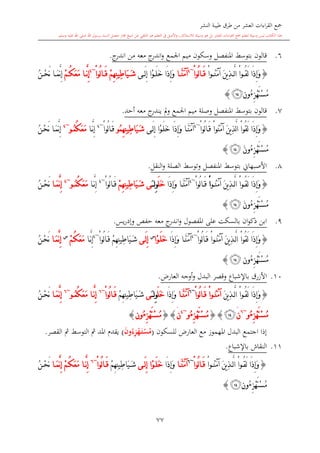 جمع القراءات العشر من طرق طيبة النشر
٦. قالون بتوسط المنفصل وسكون ميم الجمع واندرج معه من اندرج.
﴿ وَإِذَا لَقُوا۟ ٱلَّذِينَ ءَامَنُوا۟ قَالُوٓا۟ ءَامَنَّا وَإِذَا خَلَوْا۟ إِلَىٰ شَيَـٰطِينِهِمْ قَالُوٓا۟ إِنَّا مَعَكُمْ إِنَّمَا نَحْنُ
مُسْتَهْزِءُونَ ﴾
٧. قالون بتوسط المنفصل وصلة ميم الجمع ولم يندرج معه أحد.
﴿ وَإِذَا لَقُوا۟ ٱلَّذِينَ ءَامَنُوا۟ قَالُوٓا۟ ءَامَنَّا وَإِذَا خَلَوْا۟ إِلَىٰ شَيَـٰطِينِهِمُو قَالُوٓا۟ إِنَّا مَعَكُمُو إِنَّمَا نَحْنُ
مُسْتَهْزِءُونَ ﴾
٨. الأصبهاني بتوسط المنفصل وتوسط الصلة والنقل.
﴿ وَإِذَا لَقُوا۟ ٱلَّذِينَ ءَامَنُوا۟ قَالُوٓا۟ ءَامَنَّا وَإِذَا خَلَوِ ا۟لَىٰ شَيَـٰطِينِهِمْ قَالُوٓا۟ إِنَّا مَعَكُمُو إِنَّمَا نَحْنُ
مُسْتَهْزِءُونَ ﴾
٩. ابن ذكوان بالسكت على المفصول واندرج معه حفص وإدريس.
﴿ وَإِذَا لَقُوا۟ ٱلَّذِينَ ءَامَنُوا۟ قَالُوٓا۟ ءَامَنَّا وَإِذَا خَلَوْا۟ إِلَىٰ شَيَـٰطِينِهِمْ قَالُوٓا۟ إِنَّا مَعَكُمْ إِنَّمَا نَحْنُ
مُسْتَهْزِءُونَ ﴾
١٠. الأزرق بالإشباع وقصر البدل وأوجه العارض.
﴿ وَإِذَا لَقُوا۟ ٱلَّذِينَ ءَامَنُوا۟ قَالُوٓا۟ ءَامَنَّا وَإِذَا خَلَوِ ا۟لَىٰ شَيَـٰطِينِهِمْ قَالُوٓا۟ إِنَّا مَعَكُمُو إِنَّمَا نَحْنُ
مُسْتَهْزِءُونَ ﴾ ﴿ مُسْتَهْزِءُونَ ﴾ ﴿ مُسْتَهْزِءُونَ ﴾
إذا اجتمع البدل المهموز مع العارض للسكون (مُسْتَهْزِءُونَ) يقدم المد ثم التوسط ثم القصر.
١١. النقاش بالإشباع.
﴿ وَإِذَا لَقُوا۟ ٱلَّذِينَ ءَامَنُوا۟ قَالُوٓا۟ ءَامَنَّا وَإِذَا خَلَوْا۟ إِلَىٰ شَيَـٰطِينِهِمْ قَالُوٓا۟ إِنَّا مَعَكُمْ إِنَّمَا نَحْنُ
مُسْتَهْزِءُونَ ﴾
٧٧